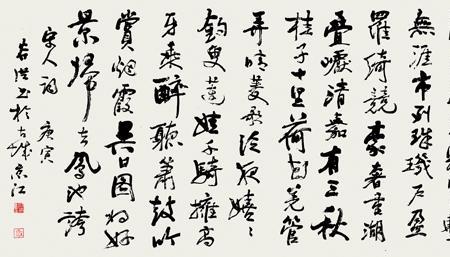 無涯市列珠璣户盈
羅綺競豪奢重湖
疊巘清嘉有三秋
桂子十里荷花羌管
弄晴菱歌泛夜嬉〻
釣叟蓮娃千騎擁高
牙乘醉聽簫鼓吟
賞烟霞異日圖將好
景歸去鳳池誇
宋人詞 庚寅
书於古城京江